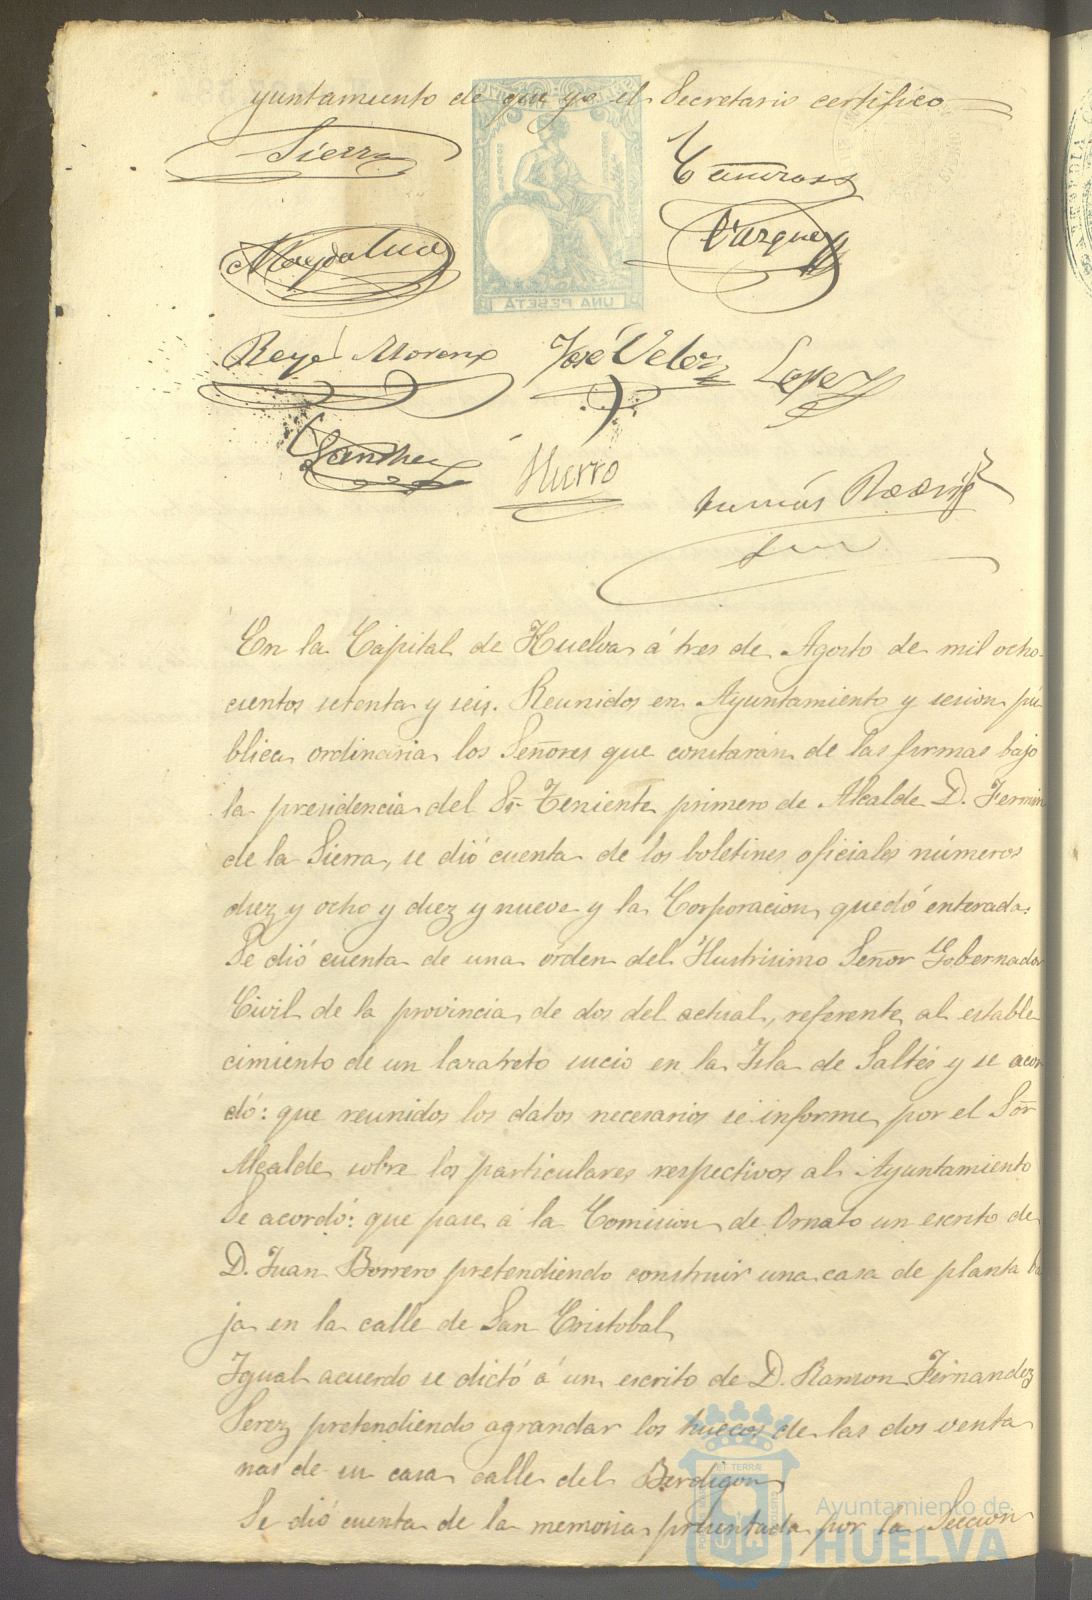 yuntamiento de que yo el Secretario certifico
Sierra
Vazquez
Magdalena
UNA PESETA
Reyes Moreno José Velez Lopez
Sanchez Hierro
Tomás Rodrig
En la Capital de Huelva á tres de Agosto de mil ocho-
cientos setenta y seis. Reunidos en Ayuntamiento y sesion pú
blica ordinaria los Señores que constarán de las firmas bajo
la presidencia del Sr Teniente primero de Alcalde D. Fermin
de la Sierra, se dió cuenta de los boletines oficiales números
diez y ocho y diez y nueve y la Corporacion quedó enterada.
Se dió cuenta de una órden del Ilustrisimo Señor Gobernador
Civil de la provincia de dos del actual, referente al estable
cimiento de un lazareto sucio en la Isla de Saltés y se acor
dó: que reunidos los datos necesarios se informe por el Sor
Alcalde sobre los particulares respectivos al Ayuntamiento
Se acordó: que pase á la Comision de Ornato un escrito de
D. Juan Borrero pretendiendo construir una casa de planta ba
ja en la calle de San Cristobal
Igual acuerdo se dictó á un escrito de D. Ramon Fernandez
Perez pretendiendo agrandar los huecos de las dos venta
nas de su casa calle del Berdigon
Se dió cuenta de la memoria presentada por la Seccion
Ayuntamiento de
HUELVA